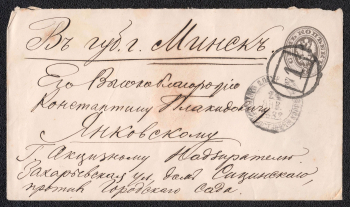 Въ губ. г. Минскъ.
Его Высокоблагородію
Константину Плакидовичу
Янковскому
Г. Акцизному Надзирателю.
Захарьевская ул., домъ Сицинскаго,
противъ Городского Сада.